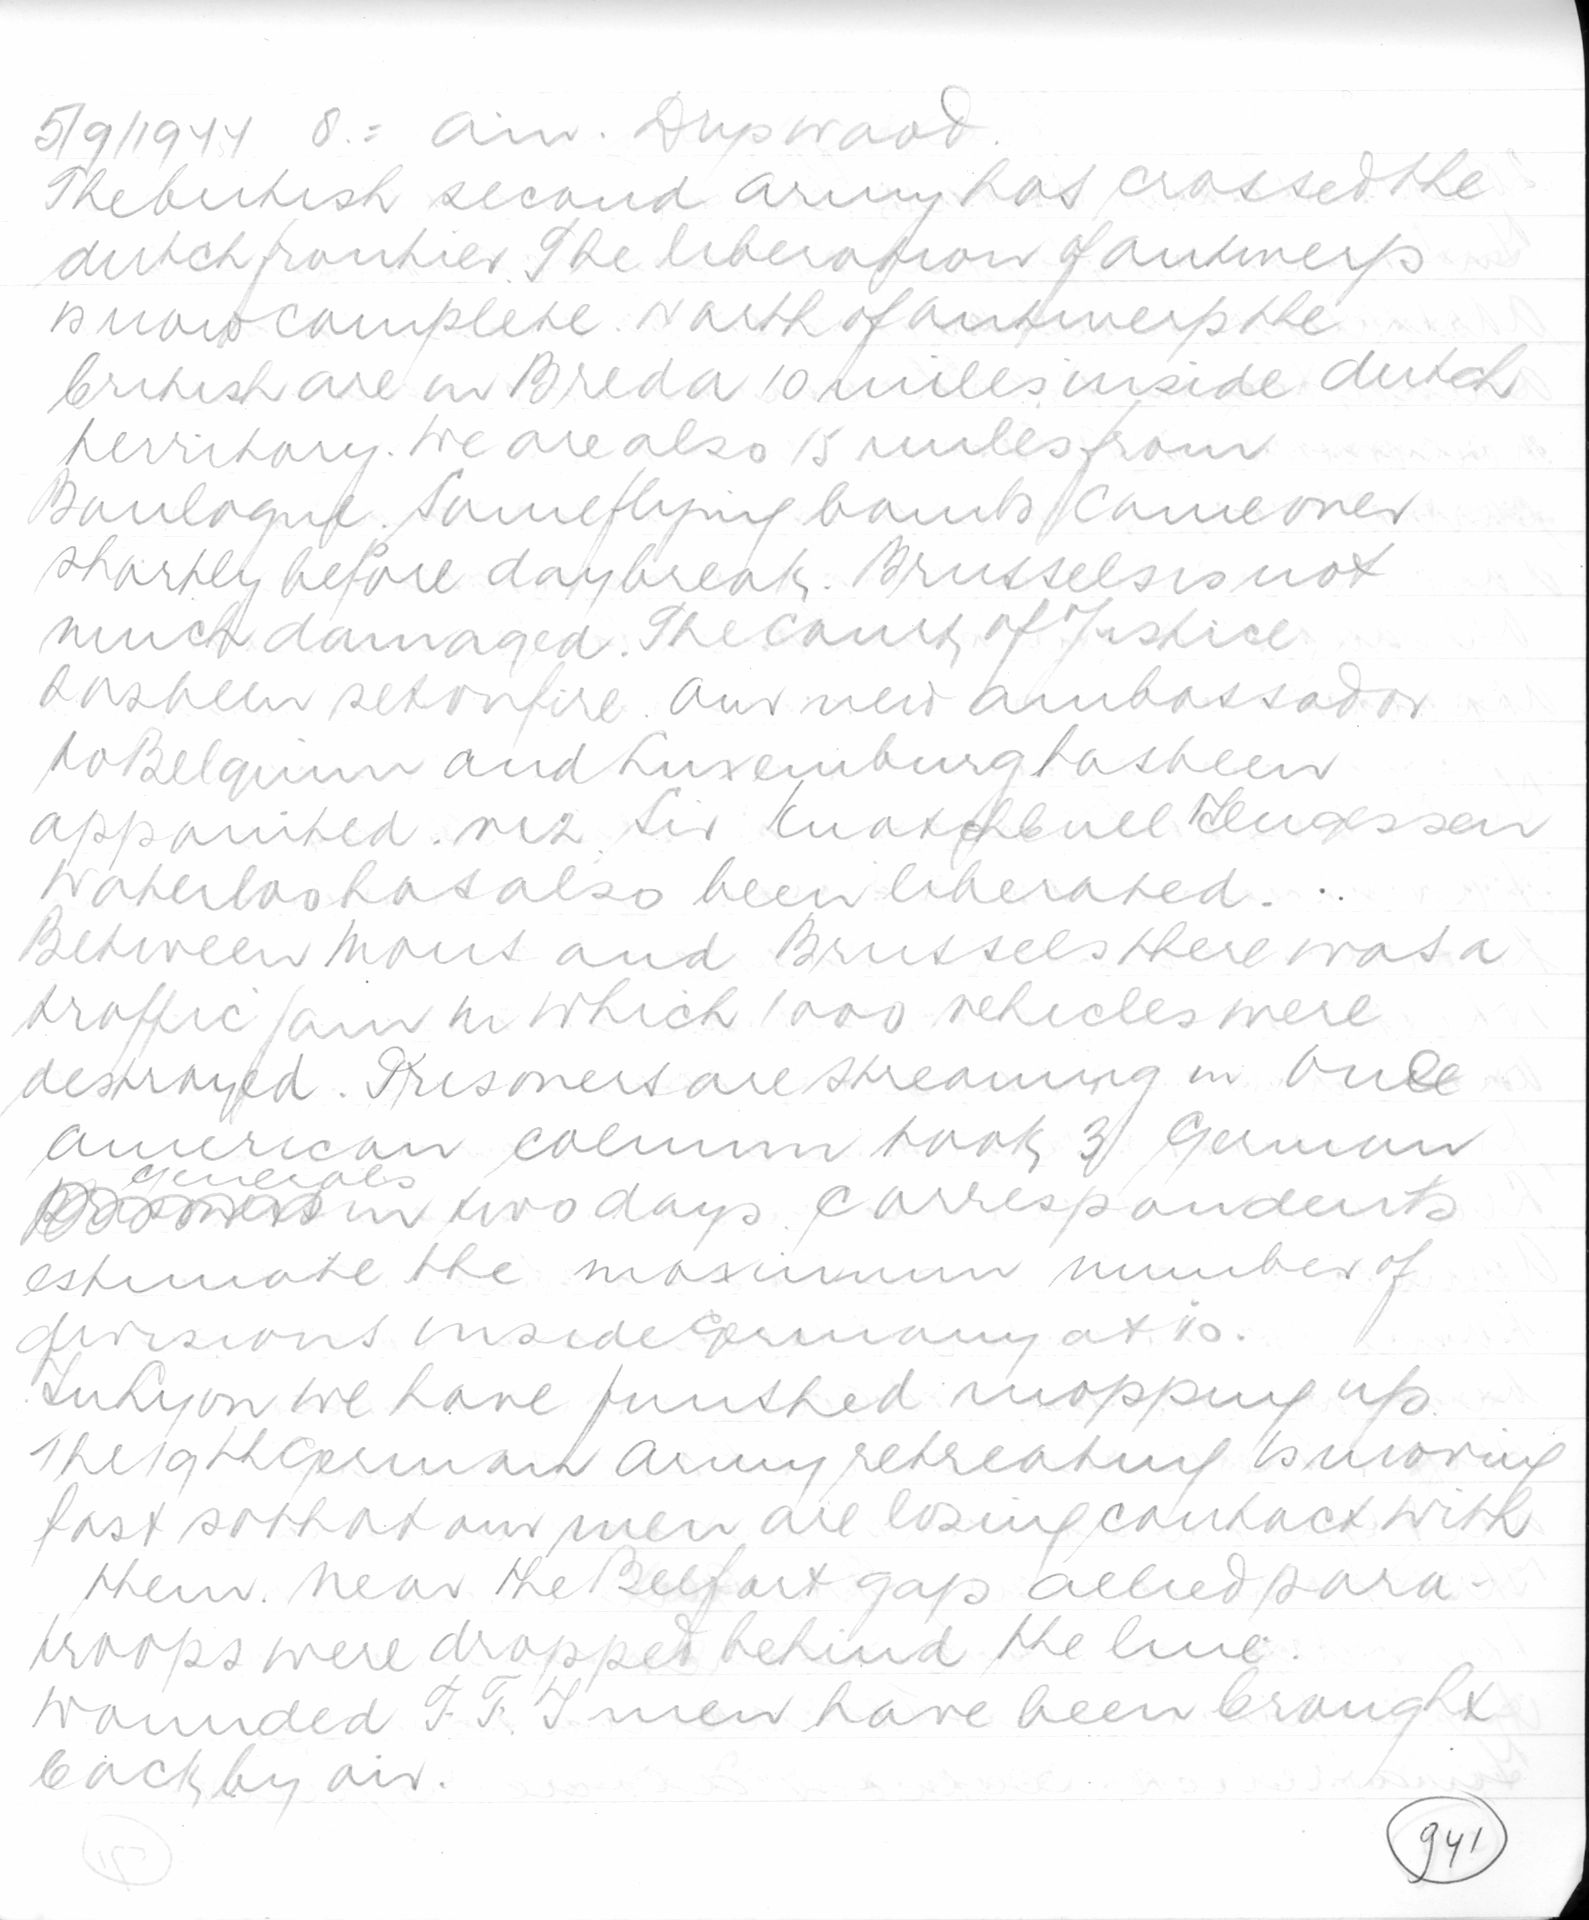 5/9/1944 8.= am. Drupwaod.
The british second army has crossed the
dutch frontier. The liberation of antwerp
is now complete. North of antwerp the
british are in Breda 10 miles inside dutch
territory. We are also 15 miles from
Boulogne. Some flying bombs came over
shortly before daybreak. Brussels is not
much damaged. The Court of Justice
has been set on fire. Our new ambassador
to Belgium and Luxemburg has been
appointed. viz. Sir Knatchbull Hugessen
Waterloo has also been liberated.
Between Mons and Brussels there was a
traffic jam in which 1000 vehicles were
destroyed. Prisoners are streaming in. One
american column took 3 German
generals in two days. Correspondents
estimate the maximum number of
divisions inside Germany at 10.
In Lyon we have finished mopping up.
The 19th German army retreating is moving
fast so that our men are losing contact with
them. Near the Belfort gap allied para-
troops were dropped behind the line.
Wounded F. F. I men have been brought
back by air.
941